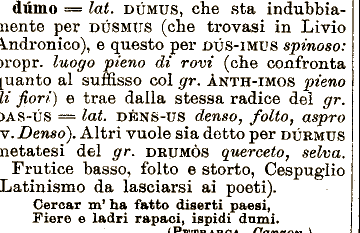 dúmo = lat. DÚMUS, che sta indubbia-
mente per DÚSMUS (che trovasi in Livio
Andronico), e questo per DÚS-IMUS spinoso:
propr. luogo pieno di rovi (che confronta
quanto al suffisso col gr. ÀNTH-IMOS pieno
di fiori) e trae dalla stessa radice del gr.
DAS-ÚS = lat. DÈNS-US denso, folto, aspro
(v. Denso). Altri vuole sia detto per DÚRMUS
metatesi del gr. DRUMÒS querceto, selva.
Frutice basso, folto e storto, Cespuglio
(Latinismo da lasciarsi ai poeti).
Cercar m' ha fatto diserti paesi,
Fiere e ladri rapaci, ispidi dumi.
(PETRARCA. Canzon.)